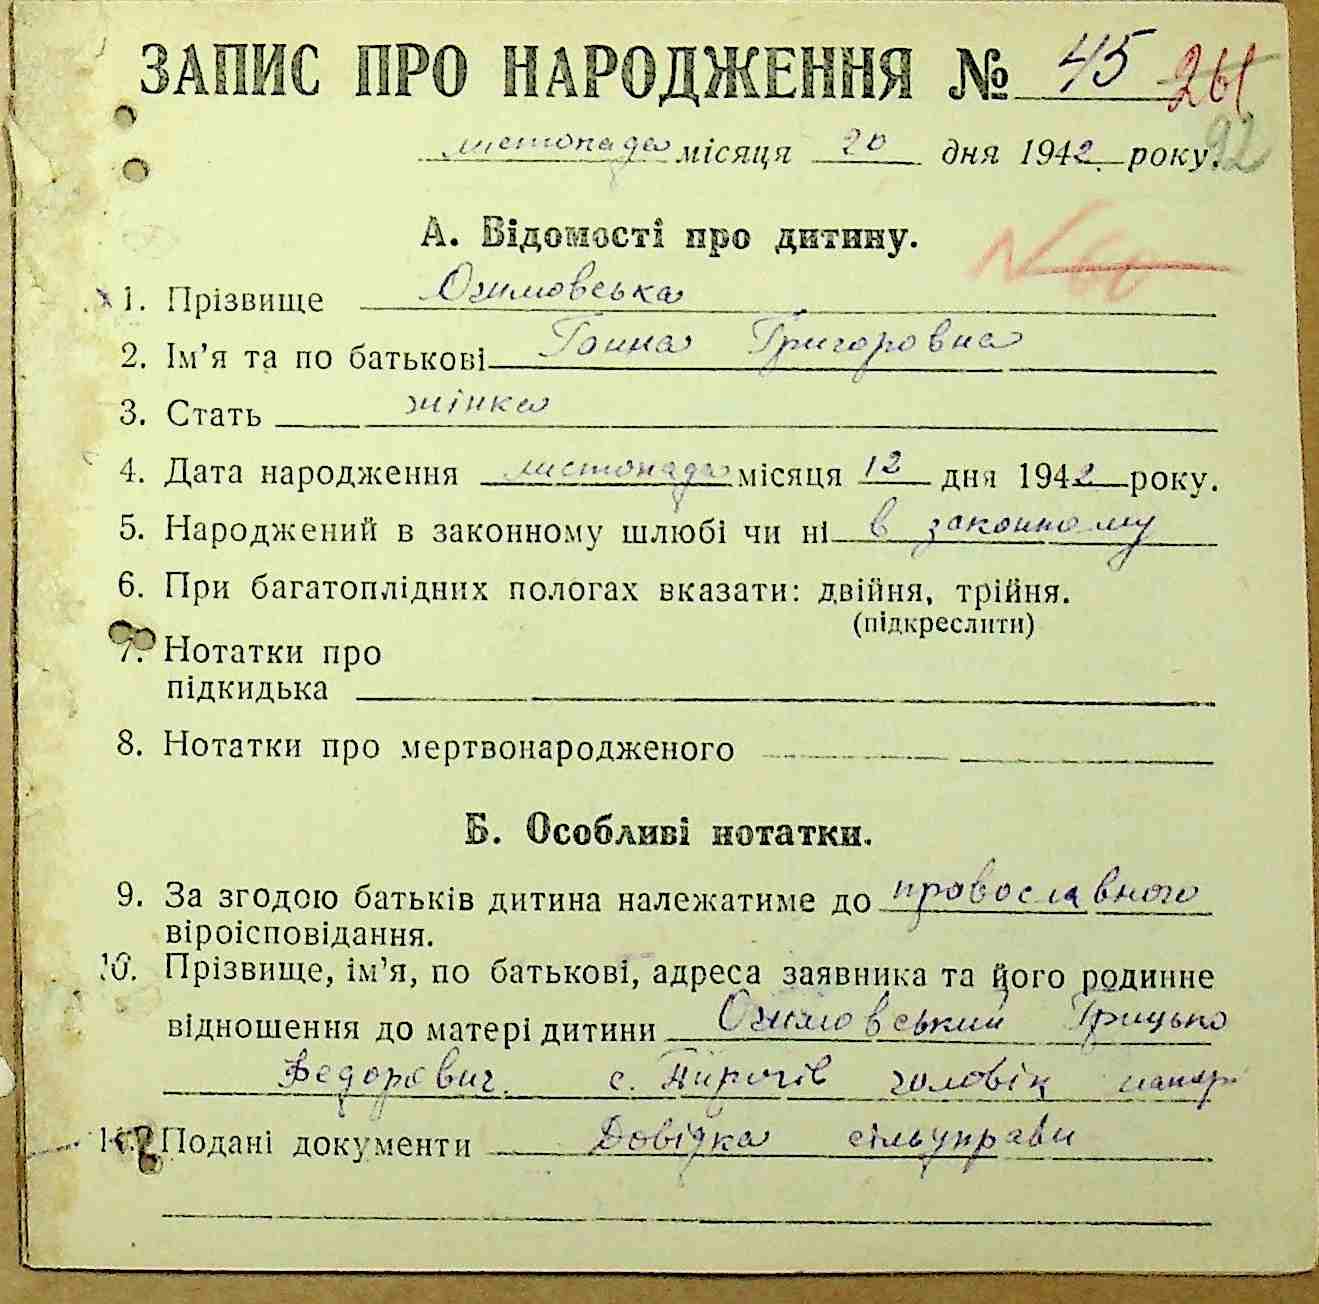 ЗАПИС ПРО НАРОДЖЕННЯ № 45 261
92
листопада місяця 20 дня 1942 року.
А. Відомості про дитину.
N 60
1. Прізвище Ожимовська
2. Ім'я та по батькові Ганна Григоровна
3. Стать жінка
4. Дата народження листопада місяця 12 дня 1942 року.
5. Народжений в законному шлюбі чи ні в законному
6. При багатоплідних пологах вказати: двійня, трійня.
(підкреслити)
7. Нотатки про
підкидька
8. Нотатки про мертвонародженого
Б. Особливі нотатки.
9. За згодою батьків дитина належатиме до провославного
віроісповідання.
10. Прізвище, ім'я, по батькові, адреса заявника та його родинне
відношення до матері дитини Ожимовський Грицько
Федорович. с. Пирогів чоловік
11. Подані документи Довідка сільуправи